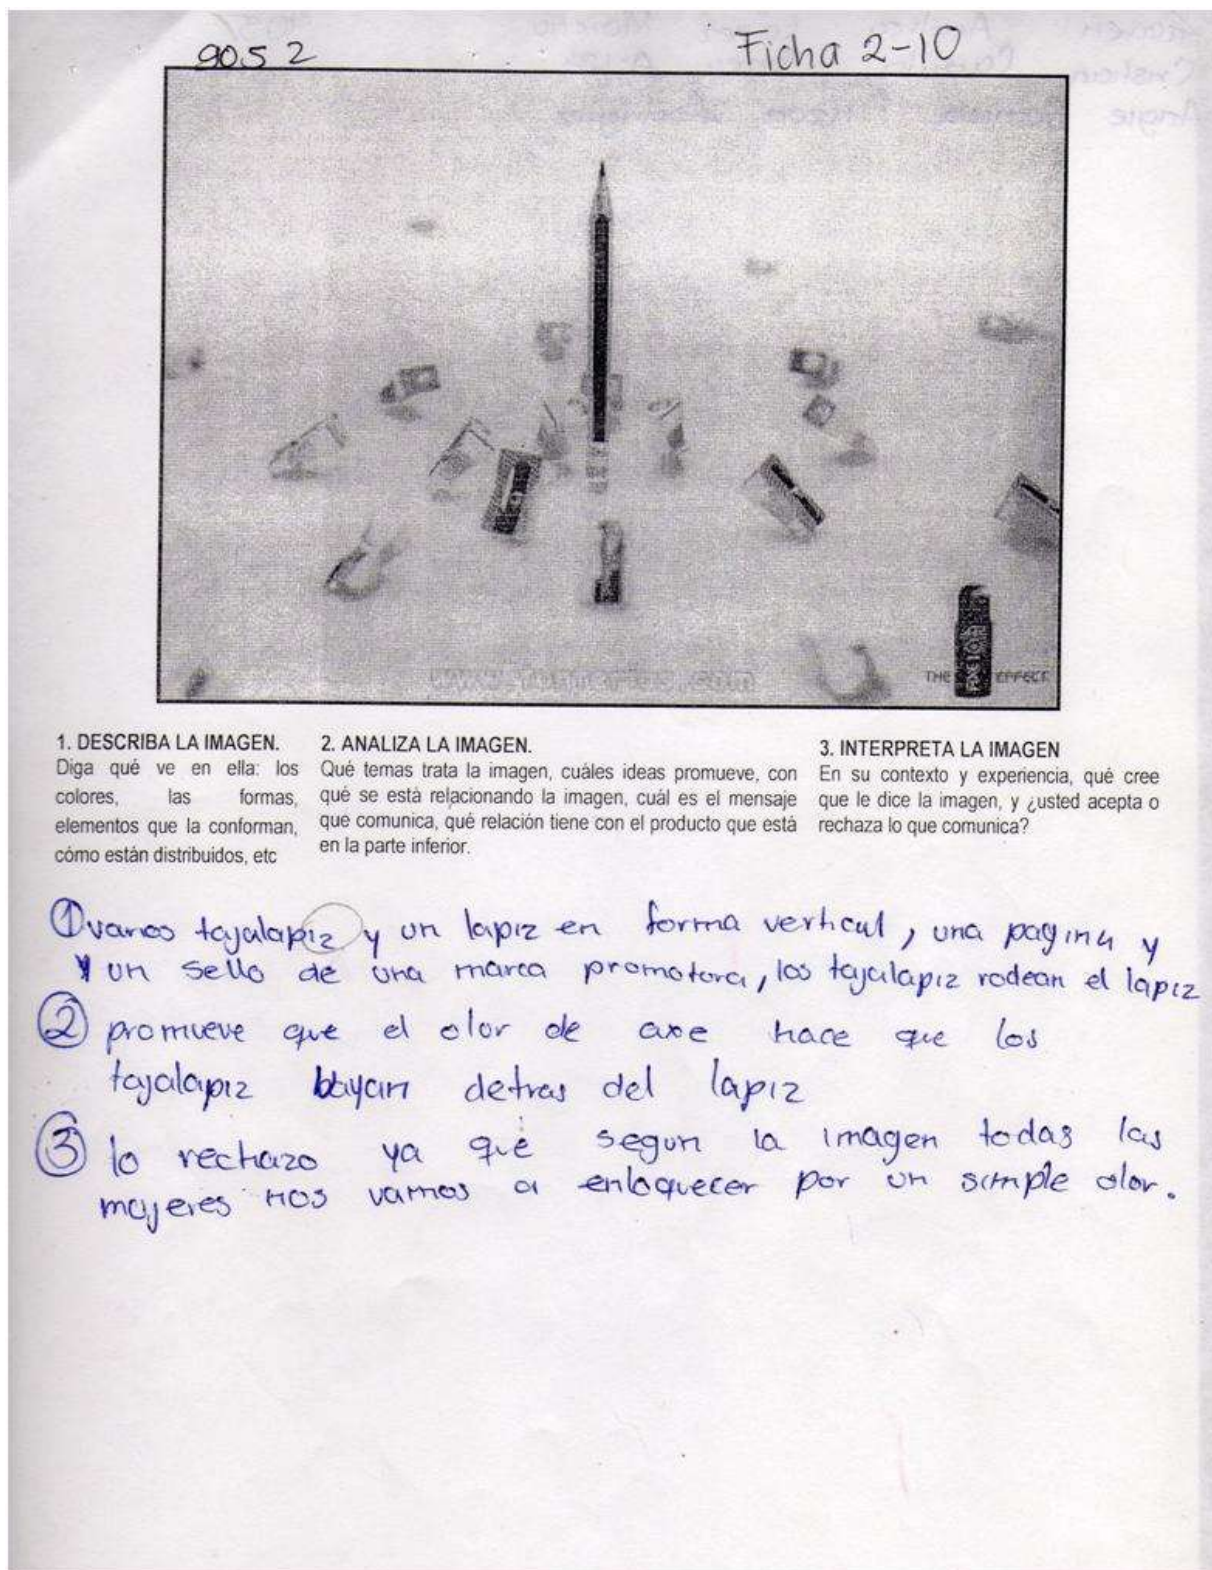 905 2
Ficha 2-10
THE AXE EFFECT
1. DESCRIBA LA IMAGEN.
Diga qué ve en ella: los
colores, las formas,
elementos que la conforman,
cómo están distribuidos, etc
2. ANALIZA LA IMAGEN.
Qué temas trata la imagen, cuáles ideas promueve, con
qué se está relacionando la imagen, cuál es el mensaje
que comunica, qué relación tiene con el producto que está
en la parte inferior.
3. INTERPRETA LA IMAGEN
En su contexto y experiencia, qué cree
que le dice la imagen, y ¿usted acepta o
rechaza lo que comunica?
① varios tajalapiz y un lapiz en forma vertical, una pagina y
y un sello de una marca promotora, los tajalapiz rodean el lapiz
② promueve que el olor de axe hace que los
tajalapiz bayan detras del lapiz
③ lo rechazo ya que segun la imagen todas las
mujeres nos vamos a enloquecer por un simple olor.